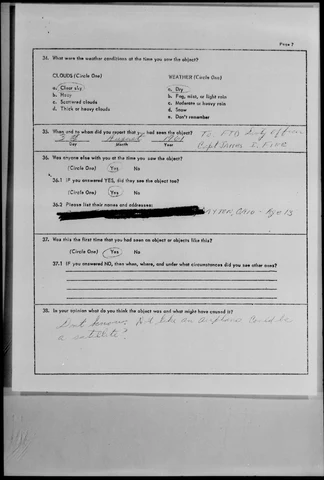 Page 7
34. What were the weather conditions at the time you saw the object?
CLOUDS (Circle One) WEATHER (Circle One)
a. Clear sky a. Dry
b. Hazy b. Fog, mist, or light rain
c. Scattered clouds c. Moderate or heavy rain
d. Thick or heavy clouds d. Snow
e. Don't remember
35. When and to whom did you report that you had seen the object?
August 1961 To FTD Duty officer
Day Month Year Capt
36. Was anyone else with you at the time you saw the object?
(Circle One) Yes No
36.1 IF you answered YES, did they see the object too?
(Circle One) Yes No
36.2 Please list their names and addresses:
Ohio - Age 13
37. Was this the first time that you had seen an object or objects like this?
(Circle One) Yes No
37.1 IF you answered NO, then when, where, and under what circumstances did you see other ones?
38. In your opinion what do you think the object was and what might have caused it?
Don't know, Not like an airplane. Could be
a satellite?